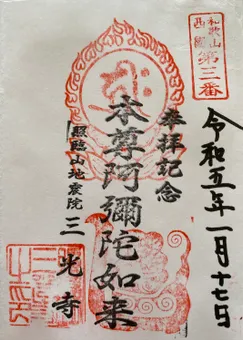 和歌山
西国
第三番
奉拝記念
令和五年一月十七日
本尊阿彌陀如来
照臨山地震院
三光寺